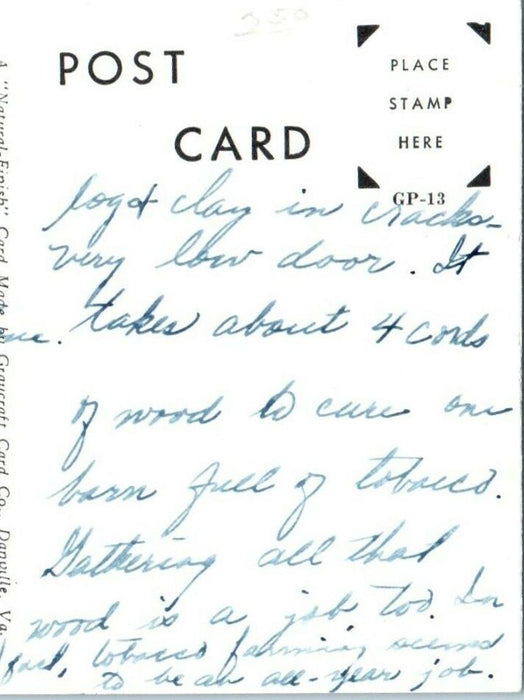 2 50
POST
CARD
PLACE
STAMP
HERE
GP-13
A "Natural-Finish" Card Made by Graycraft Card Co., Danville, Va.
log & clay in cracks-
very low door. It
takes about 4 cords
of wood to cure one
barn full of tobacco.
Gathering all that
wood is a job too. In
fact, tobacco farming seems
to be an all-year job.